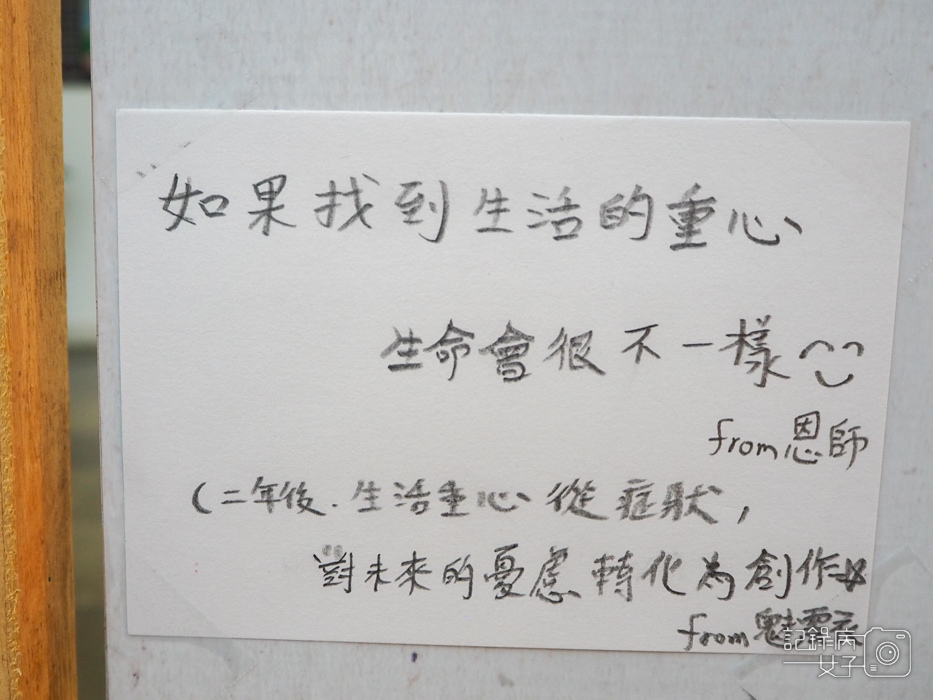 如果找到生活的重心
生命會很不一樣
from 恩師
(二年後.生活重心從症狀,
對未來的憂慮轉化為創作
from 魅雲
記錄病
女子